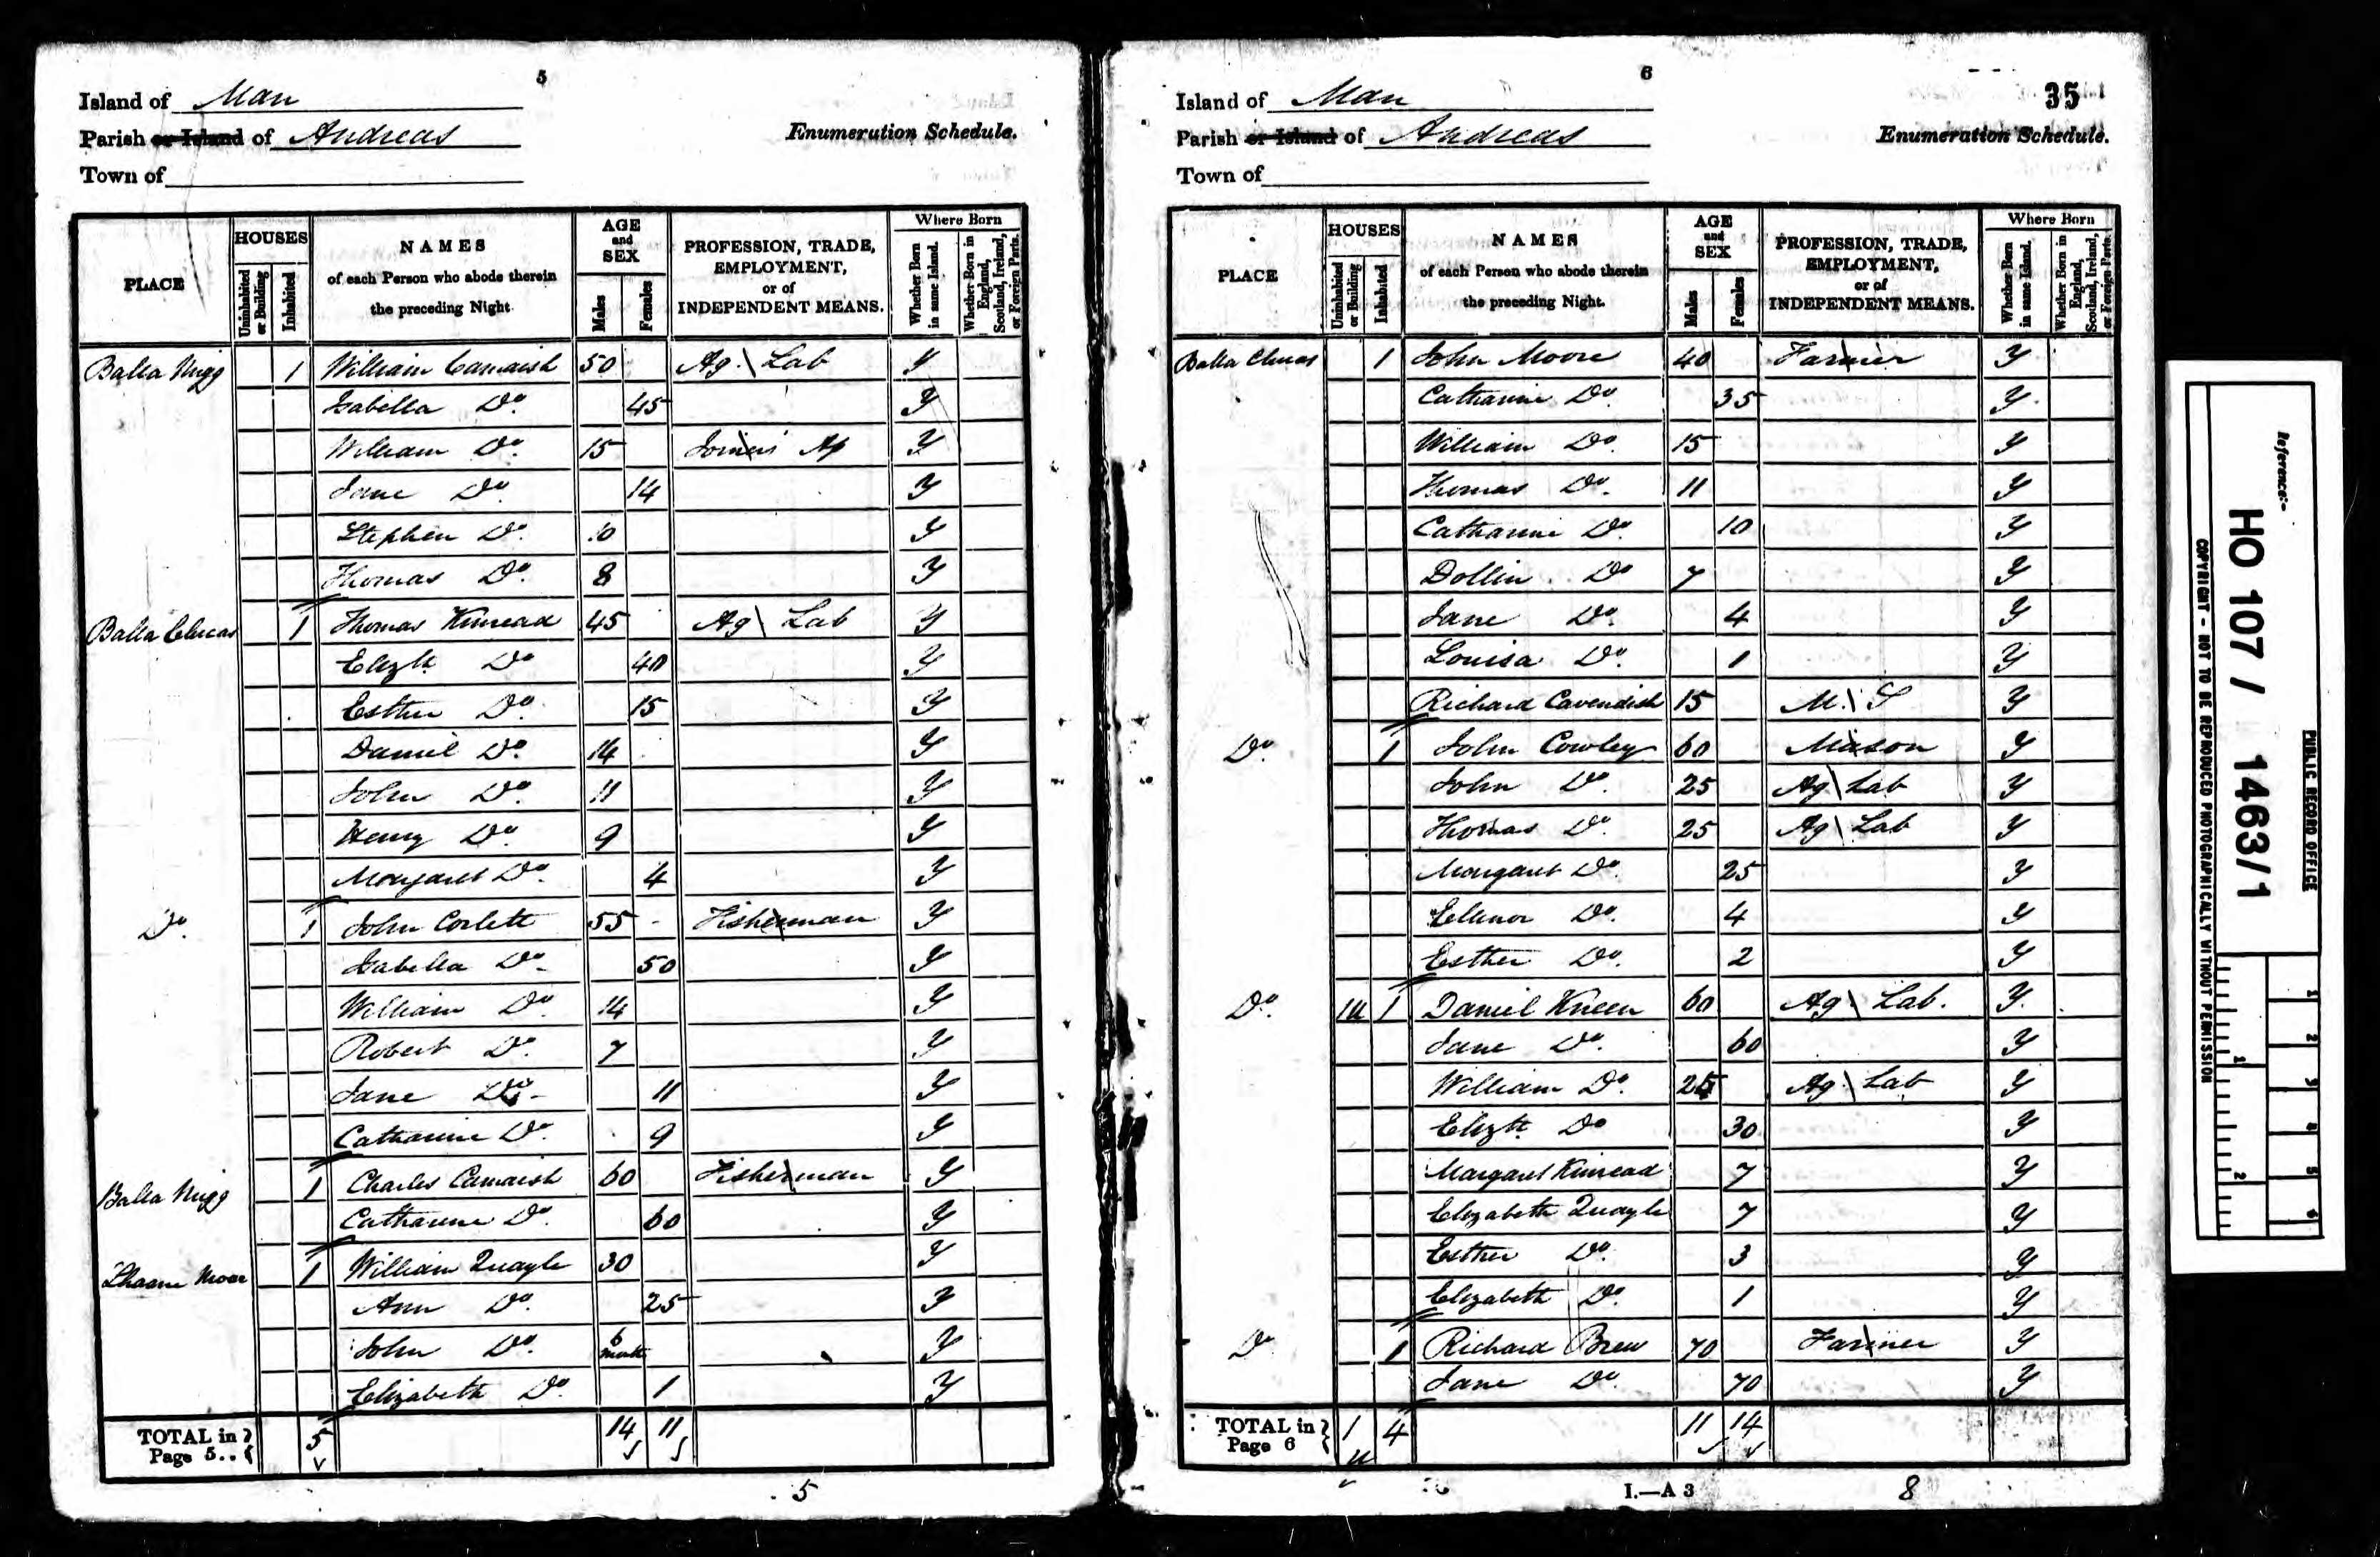 5
Island of Man
Parish or Island of Andreas
Enumeration Schedule.
Town of
PLACE
HOUSES
Uninhabited or Building
Inhabited
NAMES
of each Person who abode therein
the preceding Night.
AGE
and
SEX
Males
Females
PROFESSION, TRADE,
EMPLOYMENT,
or of
INDEPENDENT MEANS.
Where Born
Whether Born in same Island.
Whether Born in England, Scotland, Ireland, or Foreign Parts.
Balla Nigg 1 William Camaish 50 Ag. Lab Y
Isabella Do. 45 Y
William Do. 15 Joiners Ap Y
Jane Do. 14 Y
Stephen Do. 10 Y
Thomas Do. 8 Y
Balla Clucas 1 Thomas Kinread 45 Ag Lab Y
Elizth. Do 40 Y
Esther Do. 15 Y
Daniel Do. 14 Y
John Do. 11 Y
Henry Do. 9 Y
Margaret Do. 4 Y
Do. 1 John Corlett 55 Fisherman Y
Isabella Do. 50 Y
William Do. 14 Y
Robert Do. 7 Y
Jane Do. 11 Y
Catharine Do. 9 Y
Balla Nigg 1 Charles Camaish 60 Fisherman Y
Catharine Do. 60 Y
Lhaane Moar 1 William Quayle 30 Y
Ann Do. 25 Y
John Do. 6 month Y
Elizabeth Do. 1 Y
TOTAL in Page 5.. 5 14 11
5
6
35
Island of Man
Parish or Island of Andreas
Enumeration Schedule.
Town of
PLACE
HOUSES
Uninhabited or Building
Inhabited
NAMES
of each Person who abode therein
the preceding Night.
AGE
and
SEX
Males
Females
PROFESSION, TRADE,
EMPLOYMENT,
or of
INDEPENDENT MEANS.
Where Born
Whether Born in same Island.
Whether Born in England, Scotland, Ireland, or Foreign Parts.
Balla Clucas 1 John Moore 40 Farmer Y
Catharine Do. 35 Y
William Do. 15 Y
Thomas Do. 11 Y
Catharine Do. 10 Y
Dollin Do 7 Y
Jane Do. 4 Y
Louisa Do. 1 Y
Richard Cavendish 15 M. S Y
Do. 1 John Cowley 60 Mason Y
John Do. 25 Ag Lab Y
Thomas Do. 25 Ag Lab Y
Margaret Do. 25 Y
Ellenor Do. 4 Y
Esther Do. 2 Y
Do. 1u 1 Daniel Kneen 60 Ag Lab. Y
Jane Do. 60 Y
William Do. 25 Ag. Lab Y
Elizth. Do 30 Y
Margaret Kinread 7 Y
Elizabeth Quayle 7 Y
Esther Do. 3 Y
Elizabeth Do. 1 Y
Do 1 Richard Brew 70 Farmer Y
Jane Do. 70 Y
TOTAL in Page 6 1 u 4 11 14
I.—A 3
8
Reference:-
HO 107 / 1463/1
PUBLIC RECORD OFFICE
COPYRIGHT - NOT TO BE REPRODUCED PHOTOGRAPHICALLY WITHOUT PERMISSION
1
2
1
2
3
4
5
6